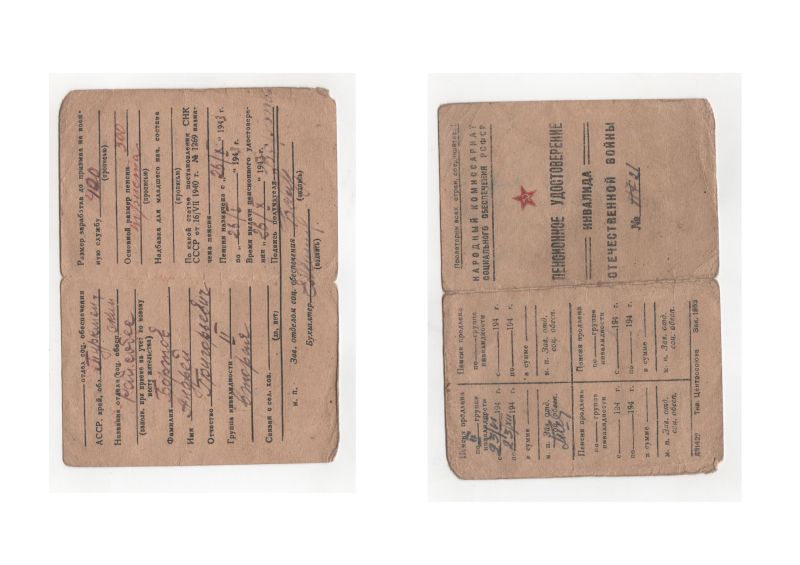 отдел соц. обеспечения
АССР, край, обл.
Название отдела соц. обесп.
районное
(запол. при приеме на учет по новому
месту жительства)
Фамилия Бортов
Имя Андрей
Отчество Григорьевич
Группа инвалидности II
вторые
Связан с сел. хоз.
(да, нет)
Размер заработка до призыва на воен-
ную службу 400
(прописью)
Основной размер пенсии 300
триста
(прописью)
Надбавка для младшего нач. состава
(прописью)
По какой статье постановления СНК
СССР от 16/VII 1940 г. № 1269 назна-
чена пенсия
Пенсия назначена с „26/X“ 1943 г.
по „26/X“ 194 г.
Время выдачи пенсионного удостовере-
ния „26/X“ 1943 г.
Подпись получателя
(подпись)
м. п. Зав. отделом соц. обеспечения
Бухгалтер
(подпись)
Пролетарии всех стран, соединяйтесь!
НАРОДНЫЙ КОМИССАРИАТ
СОЦИАЛЬНОГО ОБЕСПЕЧЕНИЯ РСФСР
ПЕНСИОННОЕ УДОСТОВЕРЕНИЕ
ИНВАЛИДА
ОТЕЧЕСТВЕННОЙ ВОЙНЫ
№ 21
Пенсия продлена
по II группе
инвалидности
с 23/XI 194 г.
по 23/XII 194 г.
в сумме
м. п. Зав. отд.
соц. обесп.
Пенсия продлена
по группе
инвалидности
с 194 г.
по 194 г.
в сумме
м. п. Зав. отд.
соц. обесп.
Пенсия продлена
по группе
инвалидности
с 194 г.
по 194 г.
в сумме
м. п. Зав. отд.
соц. обесп.
Пенсия продлена
по группе
инвалидности
с 194 г.
по 194 г.
в сумме
м. п. Зав. отд.
соц. обесп.
Тип. Центросоюза Зак. 1963